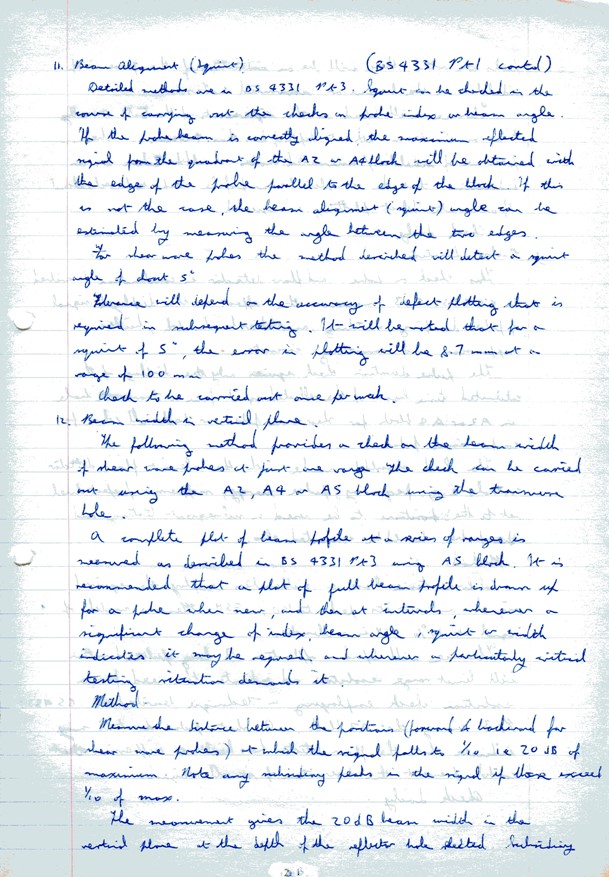 11. Beam Alignment (Squint). (BS 4331 Pt1 contd)
Detailed methods are in BS 4331 Pt3. Squint can be checked in the
course of carrying out the checks on probe index or beam angle.
If the probe beam is correctly aligned, the maximum reflected
signal from the quadrant of the A2 or A4 block will be obtained with
the edge of the probe parallel to the edge of the block. If this
is not the case, the beam alignment (squint) angle can be
estimated by measuring the angle between the two edges.
For shear wave probes the method described will detect a squint
angle of about 5°
Tolerance will depend on the accuracy of defect plotting that is
required in subsequent testing. It will be noted that for a
squint of 5°, the error in plotting will be 8.7 mm at a
range of 100 mm
Check to be carried out once per week.
12. Beam width in vertical plane.
The following method provides a check on the beam width
of shear wave probes at just one range. The check can be carried
out using the A2, A4 or A5 block using the transverse
hole.
A complete plot of beam profile at a series of ranges is
measured as described in BS 4331 Pt3 using A5 block. It is
recommended that a plot of full beam profile is drawn up
for a probe when new, and then at intervals, whenever a
significant change of index, beam angle, squint or width
indicates it may be required and whenever a particularly critical
testing situation demands it.
Method
Measure the distance between the positions (forward & backward for
shear wave probes) at which the signal falls to 1/10 ie 20 dB of
maximum. Note any subsidiary peaks in the signal if these exceed
1/10 of max.
The measurement gives the 20dB beam width in the
vertical plane at the depth of the reflector hole selected. Subsidiary